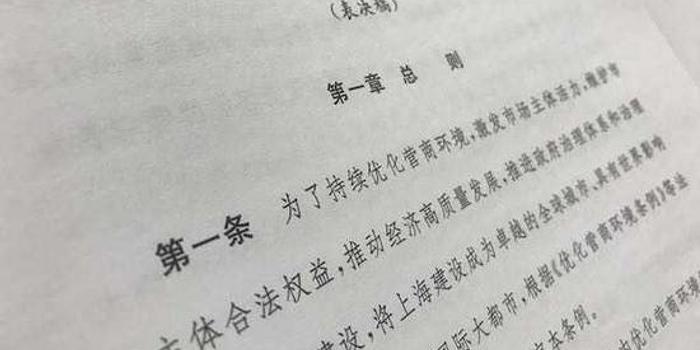 (表决稿)
第一章 总 则
第一条 为了持续优化营商环境,激发市场主体活力,维护市
主体合法权益,推动经济高质量发展,推进政府治理体系和治理
建设,将上海建设成为卓越的全球城市、具有世界影响
国际大都市,根据《优化营商环境条例》等法
本条例。
优化营商环境